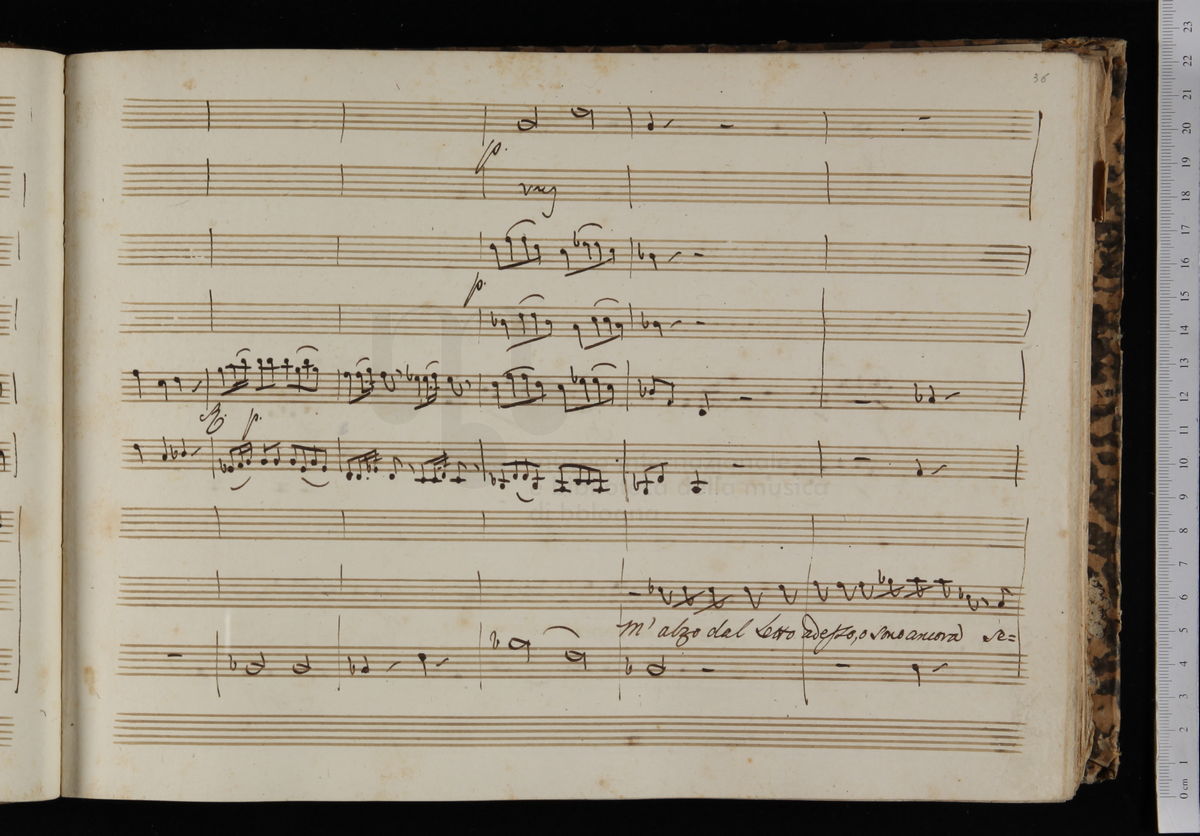 36
p.
p.
p.
M' alzo dal letto adesso, o sono ancora se=
della musica
di bologna
0 cm 1 2 3 4 5 6 7 8 9 10 11 12 13 14 15 16 17 18 19 20 21 22 23